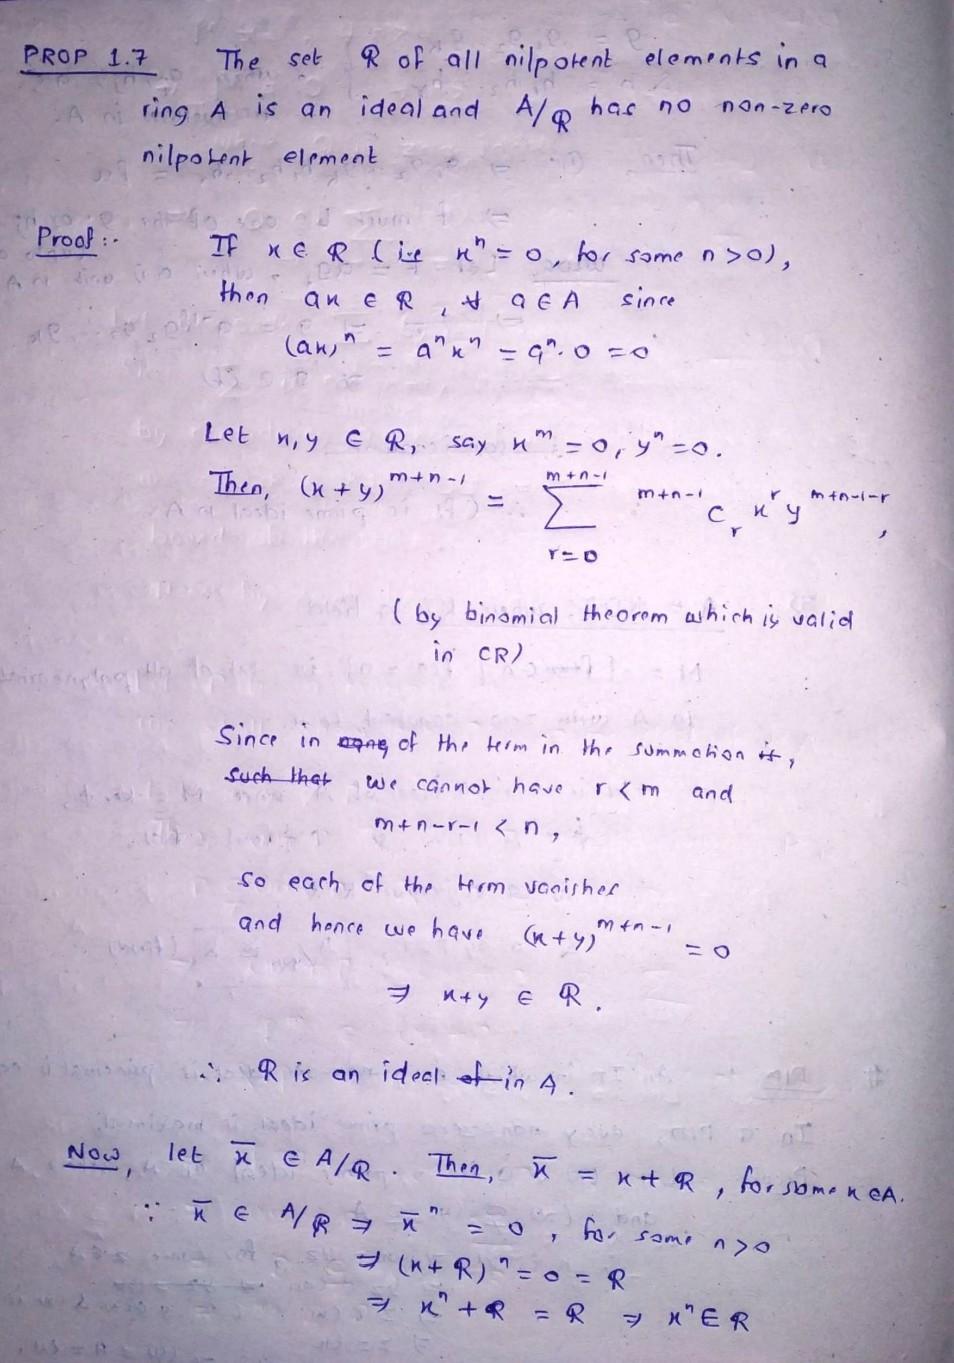 PROP 1.7 The set ℜ of all nilpotent elements in a
ring A is an ideal and A/ℜ has no non-zero
nilpotent element
Proof :- If x ∈ ℜ (i.e xⁿ = 0, for some n > 0),
then ax ∈ ℜ, ∀ a ∈ A since
(ax)ⁿ = aⁿxⁿ = aⁿ. 0 = 0
Let x, y ∈ ℜ, say xᵐ = 0, yⁿ = 0.
Then, (x + y)^{m+n-1} = \sum_{r=0}^{m+n-1} {}^{m+n-1}C_r x^r y^{m+n-1-r},
( by binomial theorem which is valid
in CR)
Since in of the term in the summation ,
we cannot have r < m and
m+n-r-1 < n,
so each of the term vanishes
and hence we have (x+y)^{m+n-1} = 0
⇒ x+y ∈ ℜ.
∴ ℜ is an ideal in A.
Now, let x̄ ∈ A/ℜ. Then, x̄ = x + ℜ, for some x ∈ A.
∵ x̄ ∈ A/ℜ ⇒ x̄ⁿ = 0, for some n > 0
⇒ (x + ℜ)ⁿ = 0 = ℜ
⇒ xⁿ + ℜ = ℜ ⇒ xⁿ ∈ ℜ